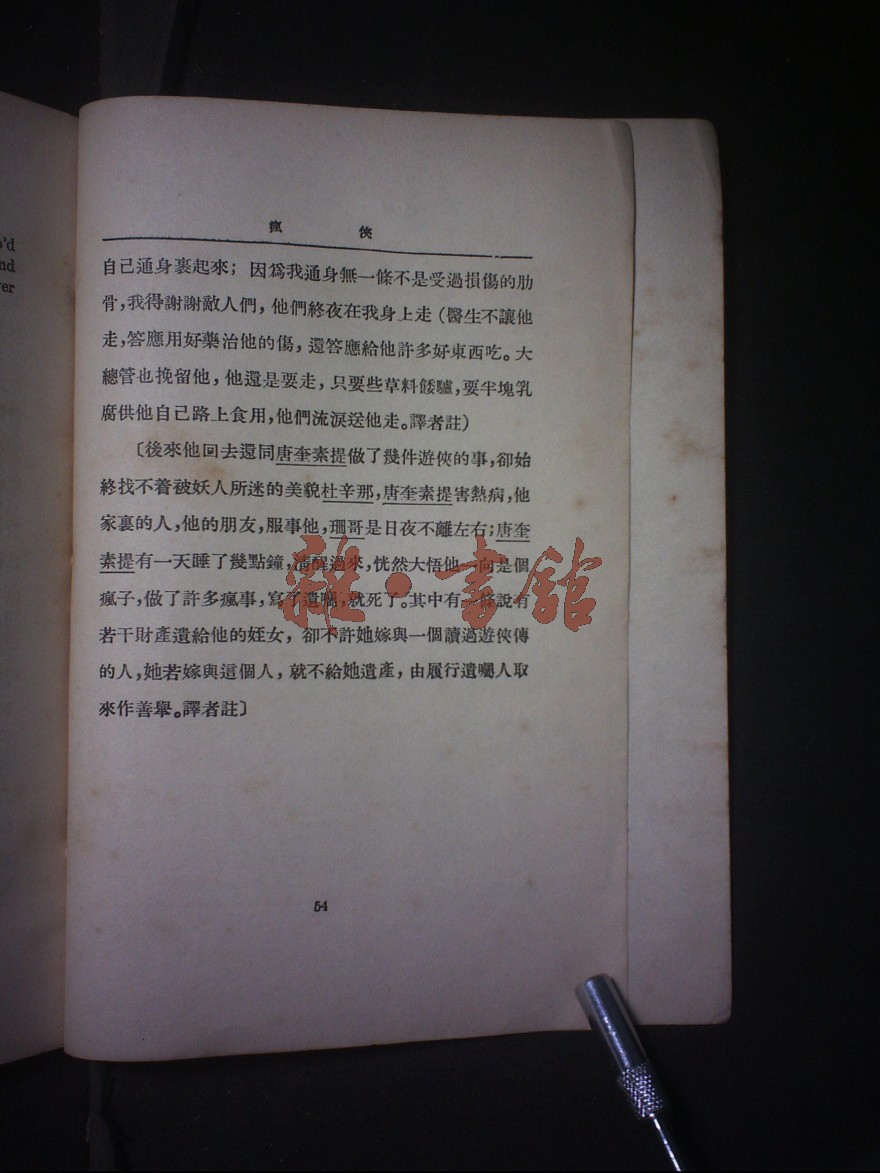 o'd
nd
ver
瘋 俠
自己通身裹起來；因爲我通身無一條不是受過損傷的肋
骨，我得謝謝敵人們，他們終夜在我身上走（醫生不讓他
走，答應用好藥治他的傷，還答應給他許多好東西吃。大
總管也挽留他，他還是要走，只要些草料餧驢，要半塊乳
腐供他自己路上食用，他們流淚送他走。譯者註）
〔後來他回去還同唐奎素提做了幾件遊俠的事，卻始
終找不着被妖人所迷的美貌杜辛那，唐奎素提害熱病，他
家裏的人，他的朋友，服事他，珊哥是日夜不離左右；唐奎
素提有一天睡了幾點鐘，清醒過來，恍然大悟他一向是個
瘋子，做了許多瘋事，寫了遺囑，就死了。其中有一條說有
若干財產遺給他的姪女，卻不許她嫁與一個讀過遊俠傳
的人，她若嫁與這個人，就不給她遺產，由履行遺囑人取
來作善舉。譯者註〕
54
雜·書館